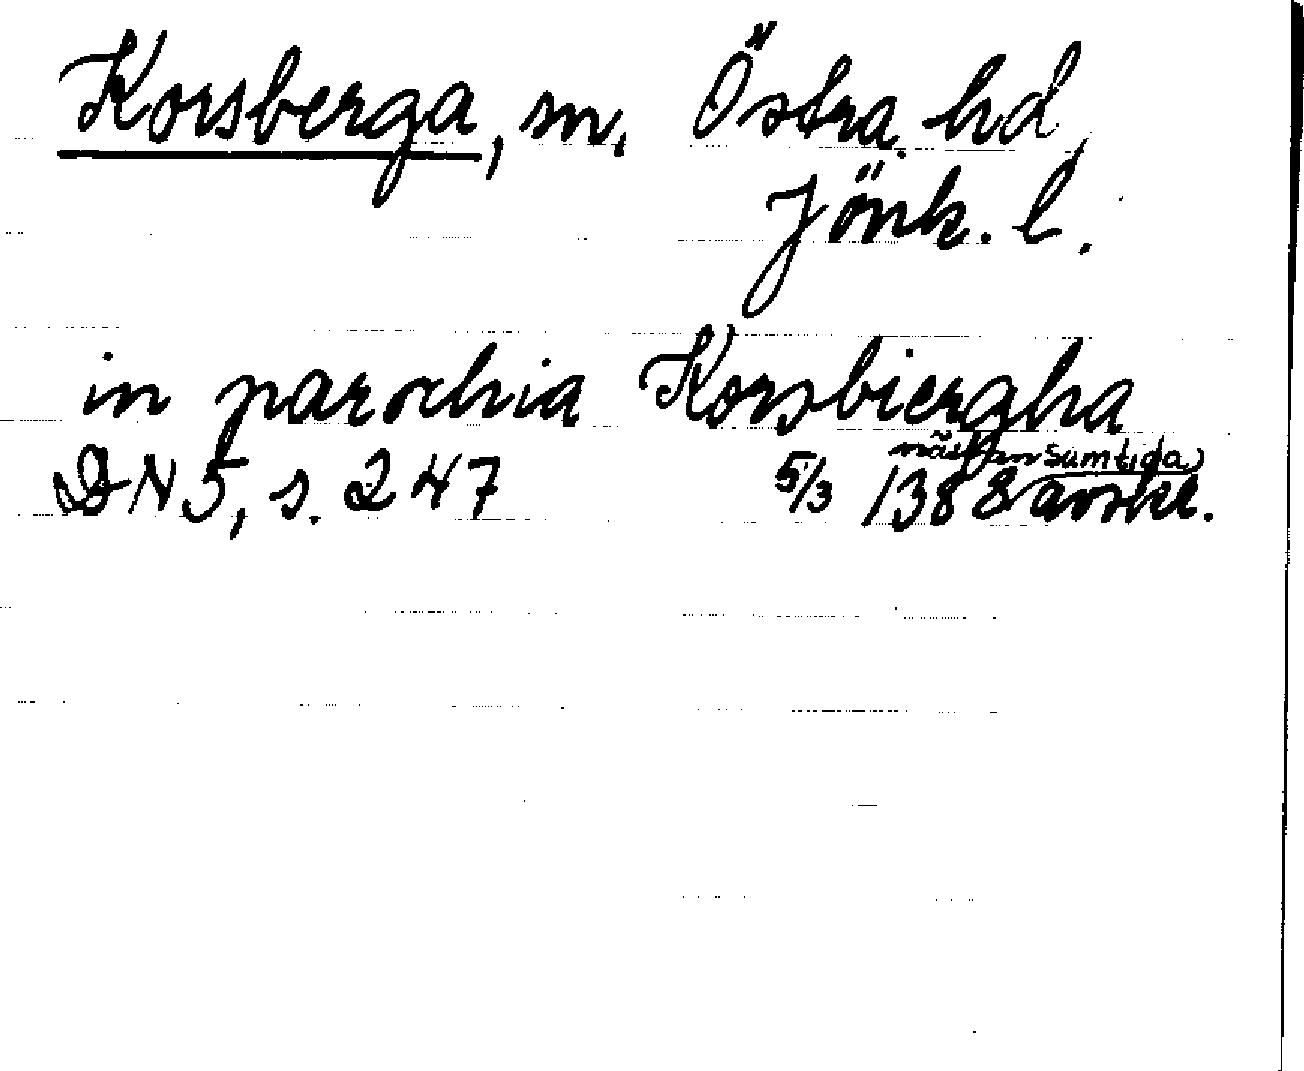 Korsberga, sn, Östra hd,
Jönk. l.
in parochia Korsbiergha
nästan samtida
DN 5, s. 247 5/3 1388 avskr.